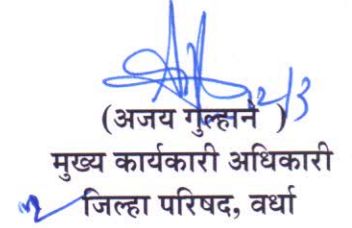 12/3
(अजय गुल्हाने )
मुख्य कार्यकारी अधिकारी
जिल्हा परिषद, वर्धा